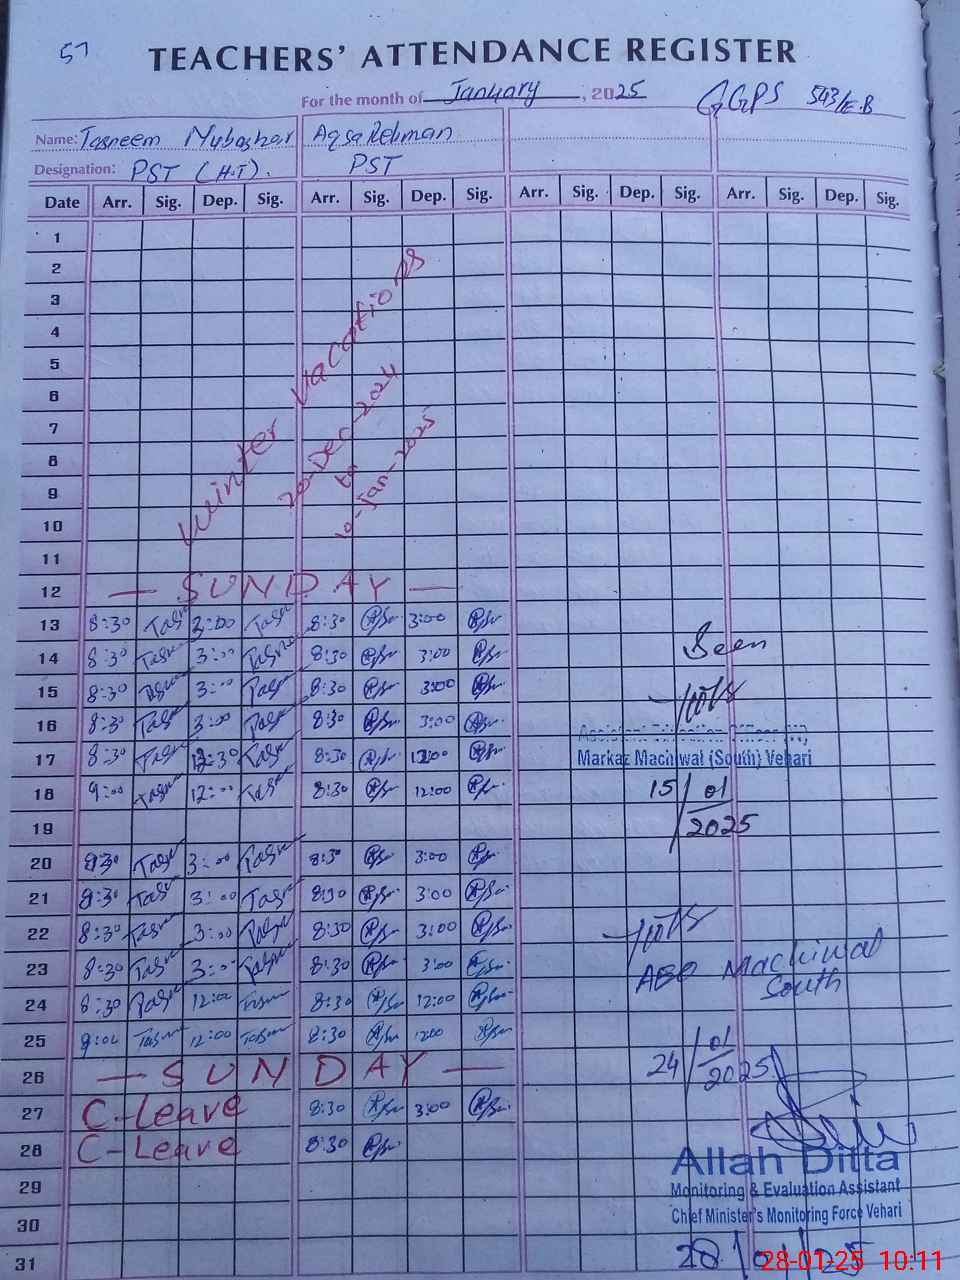 57
TEACHERS' ATTENDANCE REGISTER
For the month of January, 2025 GGPS 543/E.B
Name: Tasneem Mubashar Aqsa Rehman
Designation: PST (H.T). PST
Date Arr. Sig. Dep. Sig. Arr. Sig. Dep. Sig. Arr. Sig. Dep. Sig. Arr. Sig. Dep. Sig.
1
2
3
4
5
6
7
8
9
10
11
Winter Vacations
20-Dec-2024
to
10-Jan-2025
12 — SUNDAY —
13 8:30 Tasn 3:00 Tasn 8:30 3:00
14 8:30 Tasn 3:00 Tasn 8:30 3:00
Seen
15 8:30 Tasn 3:00 Tasn 8:30 3:00
16 8:30 Tasn 3:00 Tasn 8:30 3:00
Assistant Education Officer
17 8:30 Tasn 12:30 Tasn 8:30 12:00
Markaz Machiwal (South) Vehari
18 9:00 Tasn 12:00 Tasn 8:30 12:00
15/01/2025
19
20 8:30 Tasn 3:00 Tasn 8:30 3:00
21 8:30 Tasn 3:00 Tasn 8:30 3:00
22 8:30 Tasn 3:00 Tasn 8:30 3:00
23 8:30 Tasn 3:00 Tasn 8:30 3:00
AEO Machiwal
South
24 8:30 Tasn 12:00 Tasn 8:30 12:00
25 9:00 Tasn 12:00 Tasn 8:30 12:00
24/01/2025
26 — SUNDAY —
27 C-Leave 8:30 3:00
28 C-Leave 8:30
Allah Ditta
29
Monitoring & Evaluation Assistant
Chief Minister's Monitoring Force Vehari
30
31
28/01/25
28-01-25 10:11